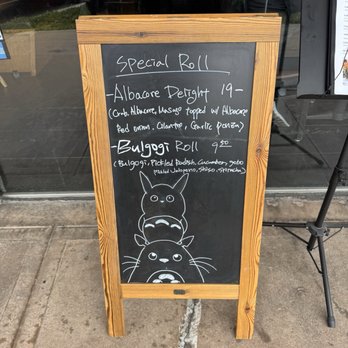 Special Roll
-Albacore Delight 19-
(Crab, Albacore, Masago topped w/ Albacore
Red onion, Cilantro, Garlic ponzu)
-Bulgogi Roll 9.50
(Bulgogi, Pickled Radish, Cucumber, gobo
Jalapeno, Shiso, Sriracha)